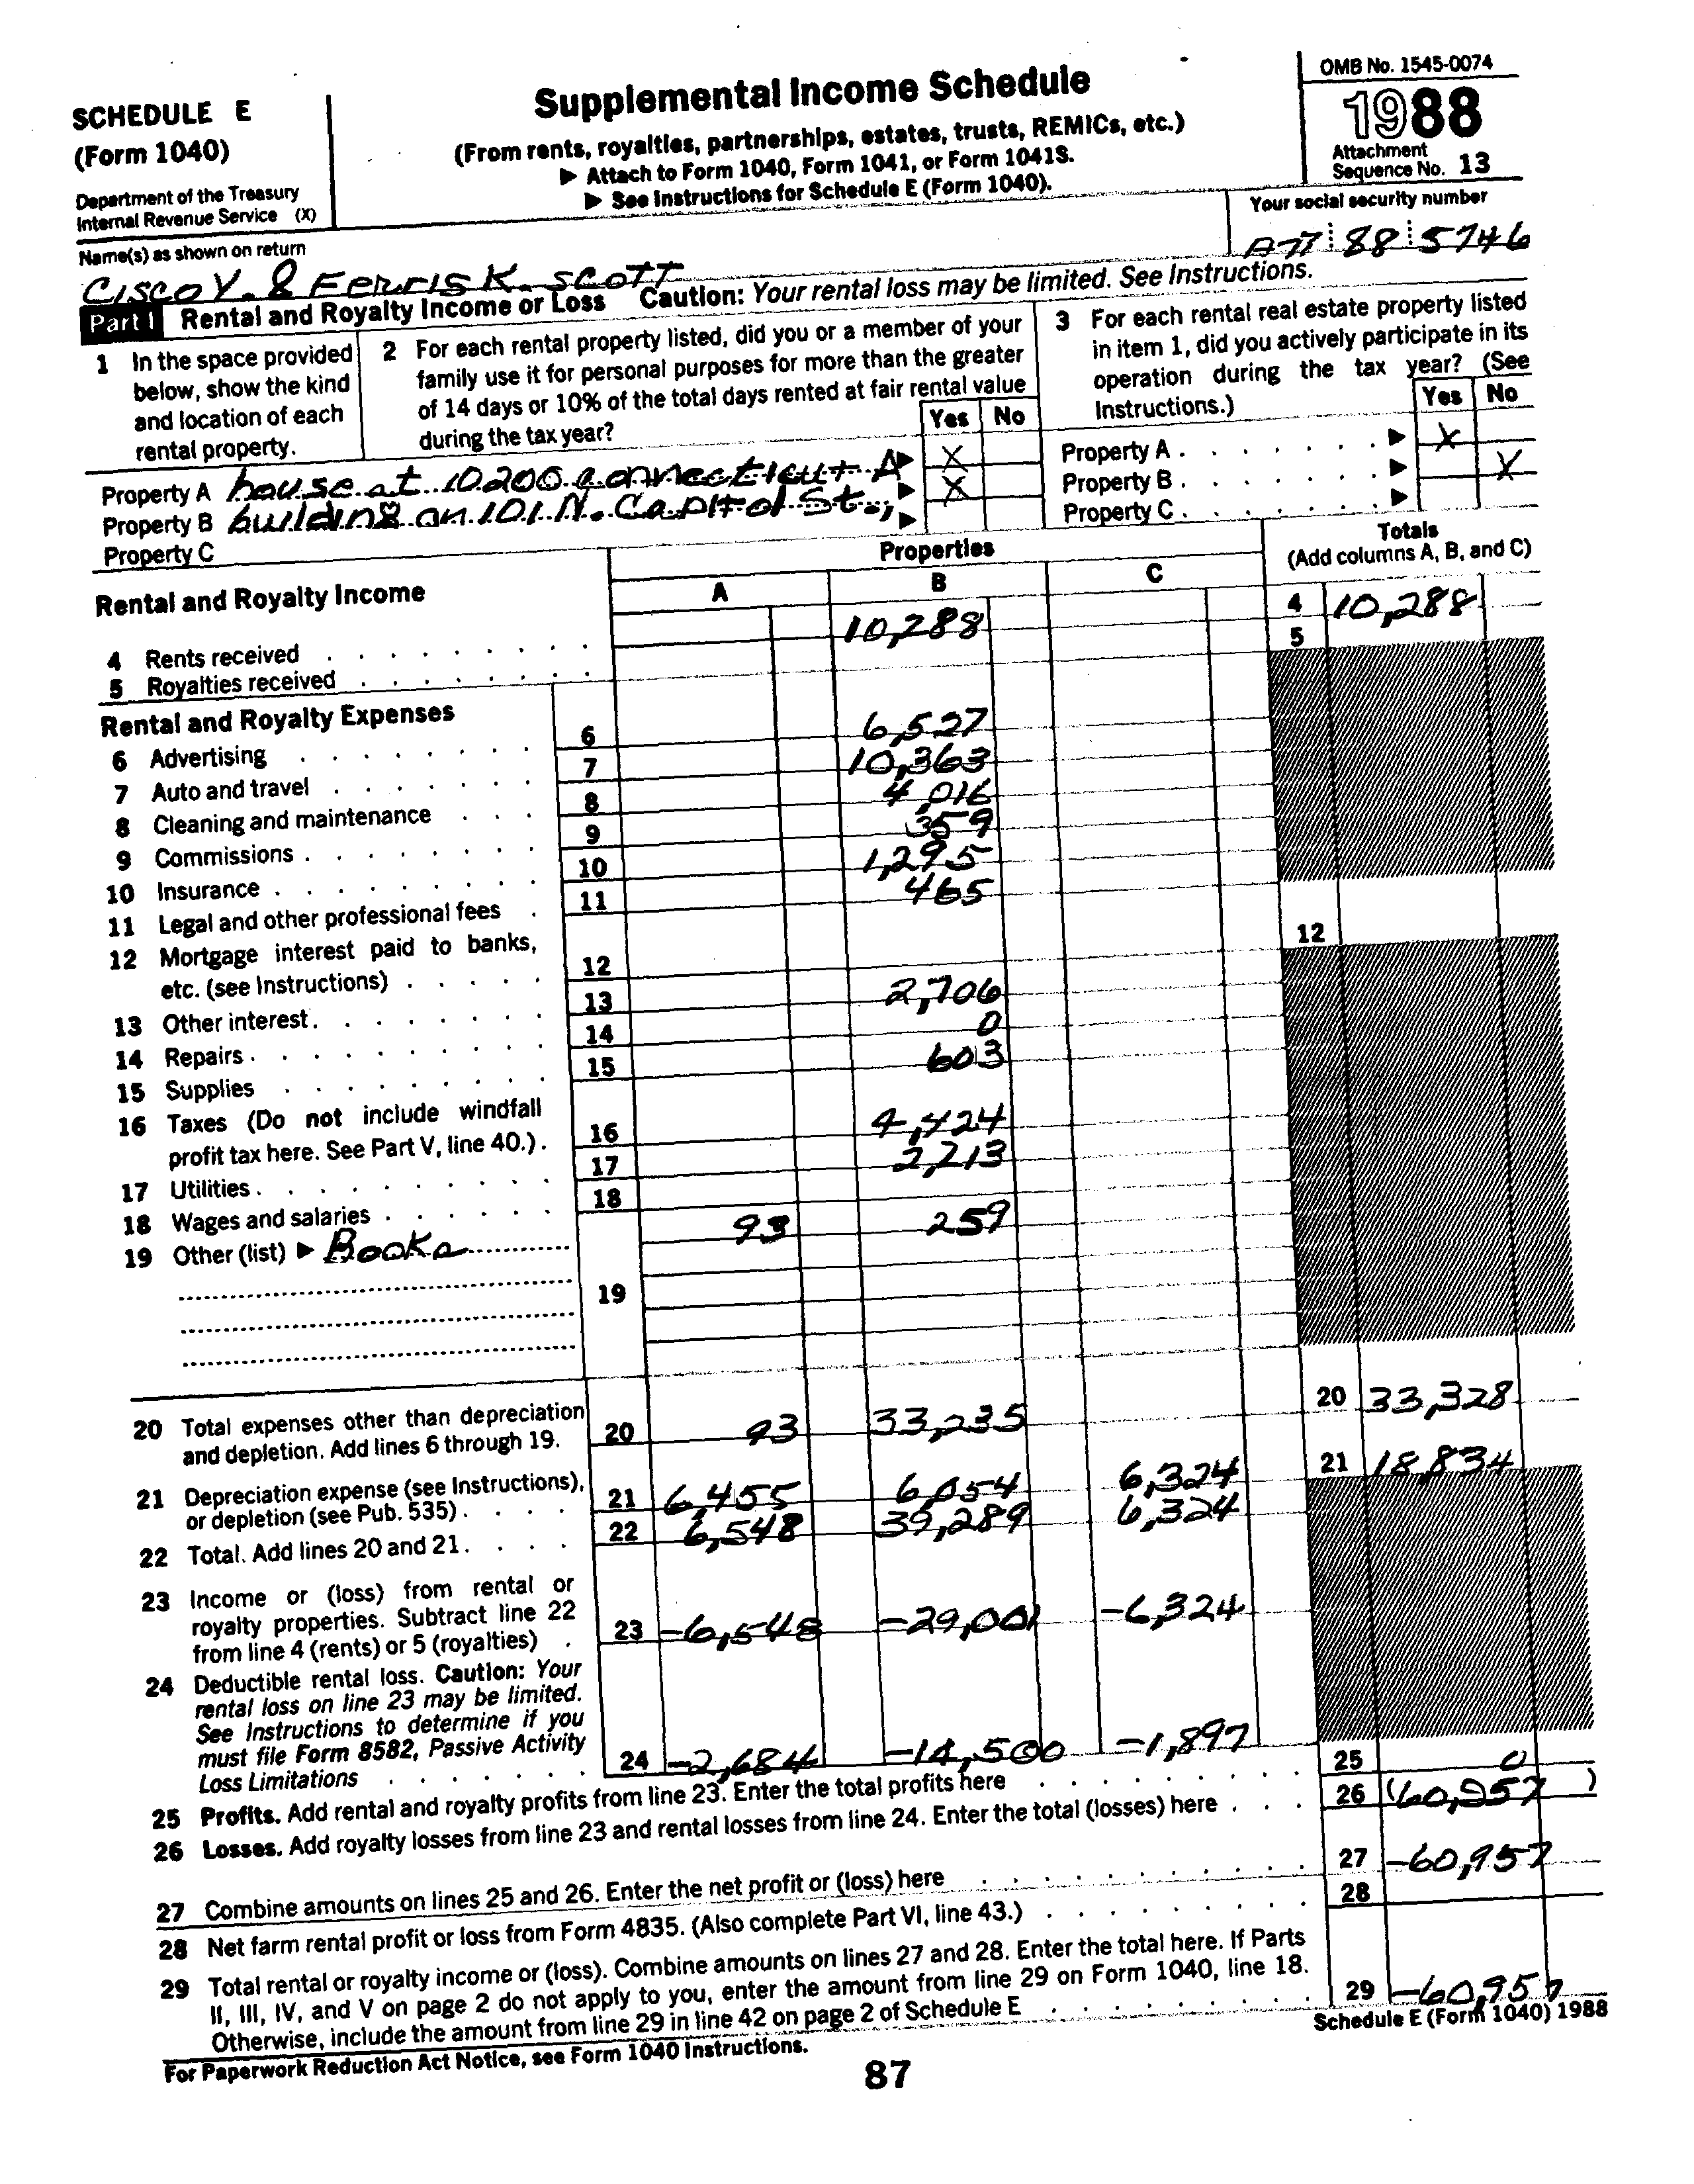 SCHEDULE E
(Form 1040)
Department of the Treasury
Internal Revenue Service (X)
Supplemental Income Schedule
(From rents, royalties, partnerships, estates, trusts, REMICs, etc.)
▶ Attach to Form 1040, Form 1041, or Form 1041S.
▶ See Instructions for Schedule E (Form 1040).
OMB No. 1545-0074
1988
Attachment
Sequence No. 13
Name(s) as shown on return
Your social security number
Cisco V. & Ferris K. Scott
88 5746
Part I Rental and Royalty Income or Loss Caution: Your rental loss may be limited. See Instructions.
1 In the space provided
below, show the kind
and location of each
rental property.
2 For each rental property listed, did you or a member of your
family use it for personal purposes for more than the greater
of 14 days or 10% of the total days rented at fair rental value
during the tax year?
Yes No
3 For each rental real estate property listed
in item 1, did you actively participate in its
operation during the tax year? (See
Instructions.)
Yes No
Property A house at 10200 Connecticut A ▶ X
Property B building on 101 N. Capitol St., ▶ X
Property C ▶
Property A . . . . . . ▶ X
Property B . . . . . . ▶ X
Property C . . . . . . ▶
Rental and Royalty Income
Properties
A B C
Totals
(Add columns A, B, and C)
4 Rents received 10,288 4 10,288
5 Royalties received 5
Rental and Royalty Expenses
6 Advertising 6 6,527
7 Auto and travel 7 10,363
8 Cleaning and maintenance 8 4,016
9 Commissions 9 359
10 Insurance 10 1,295
11 Legal and other professional fees 11 465
12 Mortgage interest paid to banks,
etc. (see Instructions) 12 12
13 Other interest 13 2,706
14 Repairs 14 0
15 Supplies 15 603
16 Taxes (Do not include windfall
profit tax here. See Part V, line 40.) 16 4,424
17 Utilities 17 2,213
18 Wages and salaries 18
19 Other (list) ▶ Books 93 259
19
20 Total expenses other than depreciation
and depletion. Add lines 6 through 19. 20 93 33,235 20 33,328
21 Depreciation expense (see Instructions),
or depletion (see Pub. 535) 21 6,455 6,054 6,324 21 18,834
22 Total. Add lines 20 and 21 22 6,548 39,289 6,324
23 Income or (loss) from rental or
royalty properties. Subtract line 22
from line 4 (rents) or 5 (royalties) 23 -6,548 -29,001 -6,324
24 Deductible rental loss. Caution: Your
rental loss on line 23 may be limited.
See Instructions to determine if you
must file Form 8582, Passive Activity
Loss Limitations 24 -2,684 -14,500 -1,897
25 Profits. Add rental and royalty profits from line 23. Enter the total profits here 25 0
26 Losses. Add royalty losses from line 23 and rental losses from line 24. Enter the total (losses) here 26 (60,957)
27 Combine amounts on lines 25 and 26. Enter the net profit or (loss) here 27 -60,957
28 Net farm rental profit or loss from Form 4835. (Also complete Part VI, line 43.) 28
29 Total rental or royalty income or (loss). Combine amounts on lines 27 and 28. Enter the total here. If Parts
II, III, IV, and V on page 2 do not apply to you, enter the amount from line 29 on Form 1040, line 18.
Otherwise, include the amount from line 29 in line 42 on page 2 of Schedule E 29 -60,957
For Paperwork Reduction Act Notice, see Form 1040 Instructions.
Schedule E (Form 1040) 1988
87